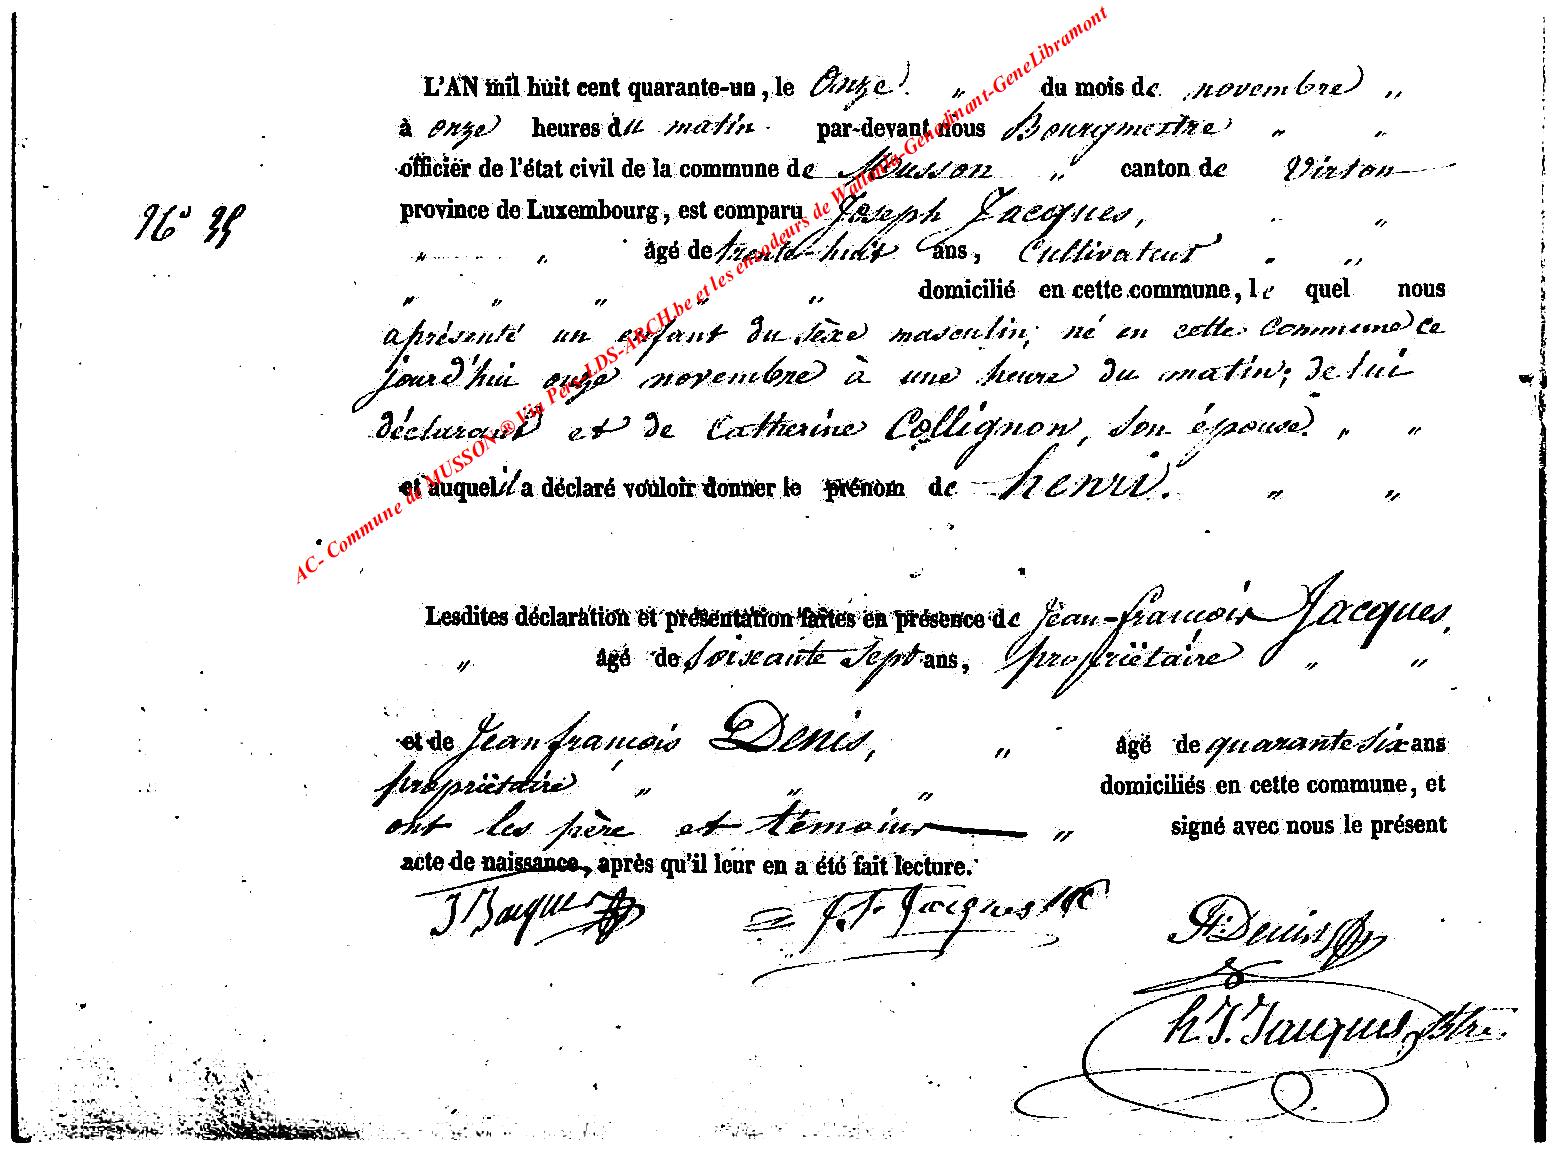 L'AN mil huit cent quarante-un, le Onze " du mois de novembre "
à onze heures du matin par-devant nous Bourgmestre " "
officier de l'état civil de la commune de Musson " canton de Virton
N° 35
province de Luxembourg, est comparu Joseph Jacques, "
" " âgé de trente-huit ans, Cultivateur " "
" " " " " domicilié en cette commune, le quel nous
a présenté un enfant du sèxe masculin, né en cette commune ce
jourd'hui onze novembre à une heure du matin; de lui
déclarant et de Catherine Collignon, son épouse. " "
et auquel il a déclaré vouloir donner le prénom de henri. " "
Lesdites déclaration et présentation faites en présence de Jean-françois Jacques,
" âgé de soixante sept ans, propriëtaire " "
et de Jean françois Denis, " âgé de quarante six ans
propriëtaire " " " domiciliés en cette commune, et
ont les père et témoins " signé avec nous le présent
acte de naissance, après qu'il leur en a été fait lecture.
J Jacques J. f. Jacques
Denis
h J. Jacques, Btre.
AC- Commune de MUSSON ® Via Pers LDS-ARCH.be et les encodeurs de Wallonia-Genedinant-GeneLibramont